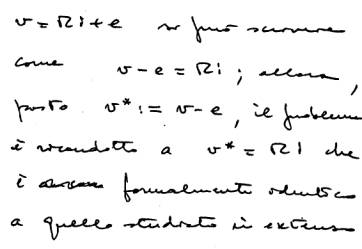 v = Ri + e si può scrivere
come v - e = Ri ; allora,
posto v* := v - e, il problema
è ricondotto a v* = Ri che
è formalmente identico
a quello studiato in extenso